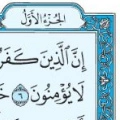 الجزء الأول
إِنَّ الَّذِينَ كَفَرُ
لَا يُؤْمِنُونَ ٦ خَ